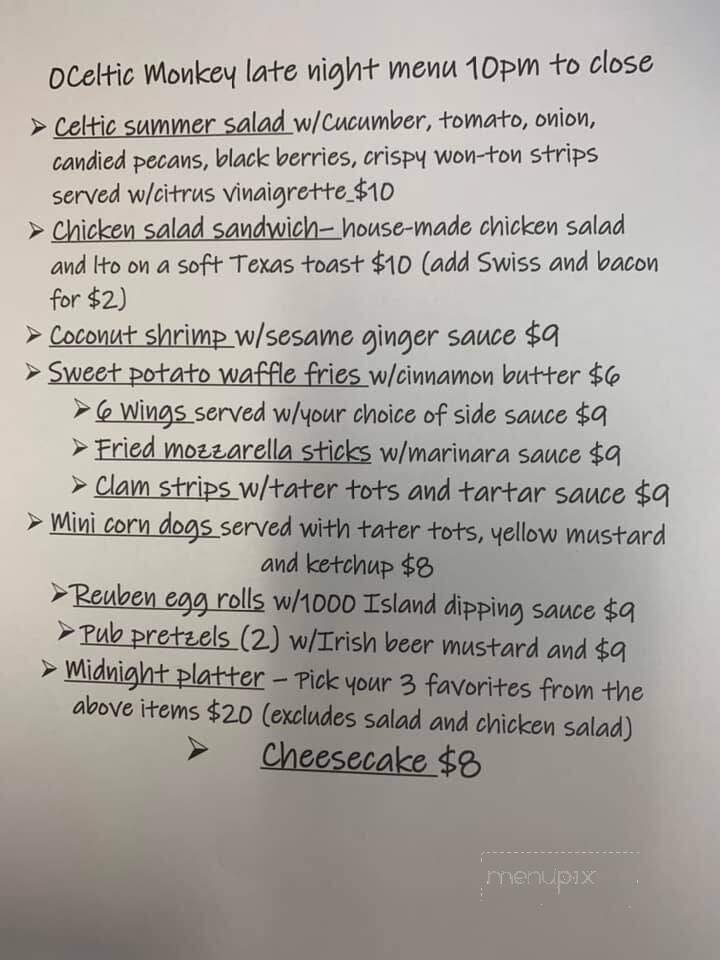 OCeltic Monkey late night menu 10pm to close
➤ Celtic summer salad w/Cucumber, tomato, onion,
candied pecans, black berries, crispy won-ton strips
served w/citrus vinaigrette $10
➤ Chicken salad sandwich– house-made chicken salad
and lto on a soft Texas toast $10 (add Swiss and bacon
for $2)
➤ Coconut shrimp w/sesame ginger sauce $9
➤ Sweet potato waffle fries w/cinnamon butter $6
➤ 6 Wings served w/your choice of side sauce $9
➤ Fried mozzarella sticks w/marinara sauce $9
➤ Clam strips w/tater tots and tartar sauce $9
➤ Mini corn dogs served with tater tots, yellow mustard
and ketchup $8
➤ Reuben egg rolls w/1000 Island dipping sauce $9
➤ Pub pretzels (2) w/Irish beer mustard and $9
➤ Midnight platter – Pick your 3 favorites from the
above items $20 (excludes salad and chicken salad)
➤ Cheesecake $8
menupix